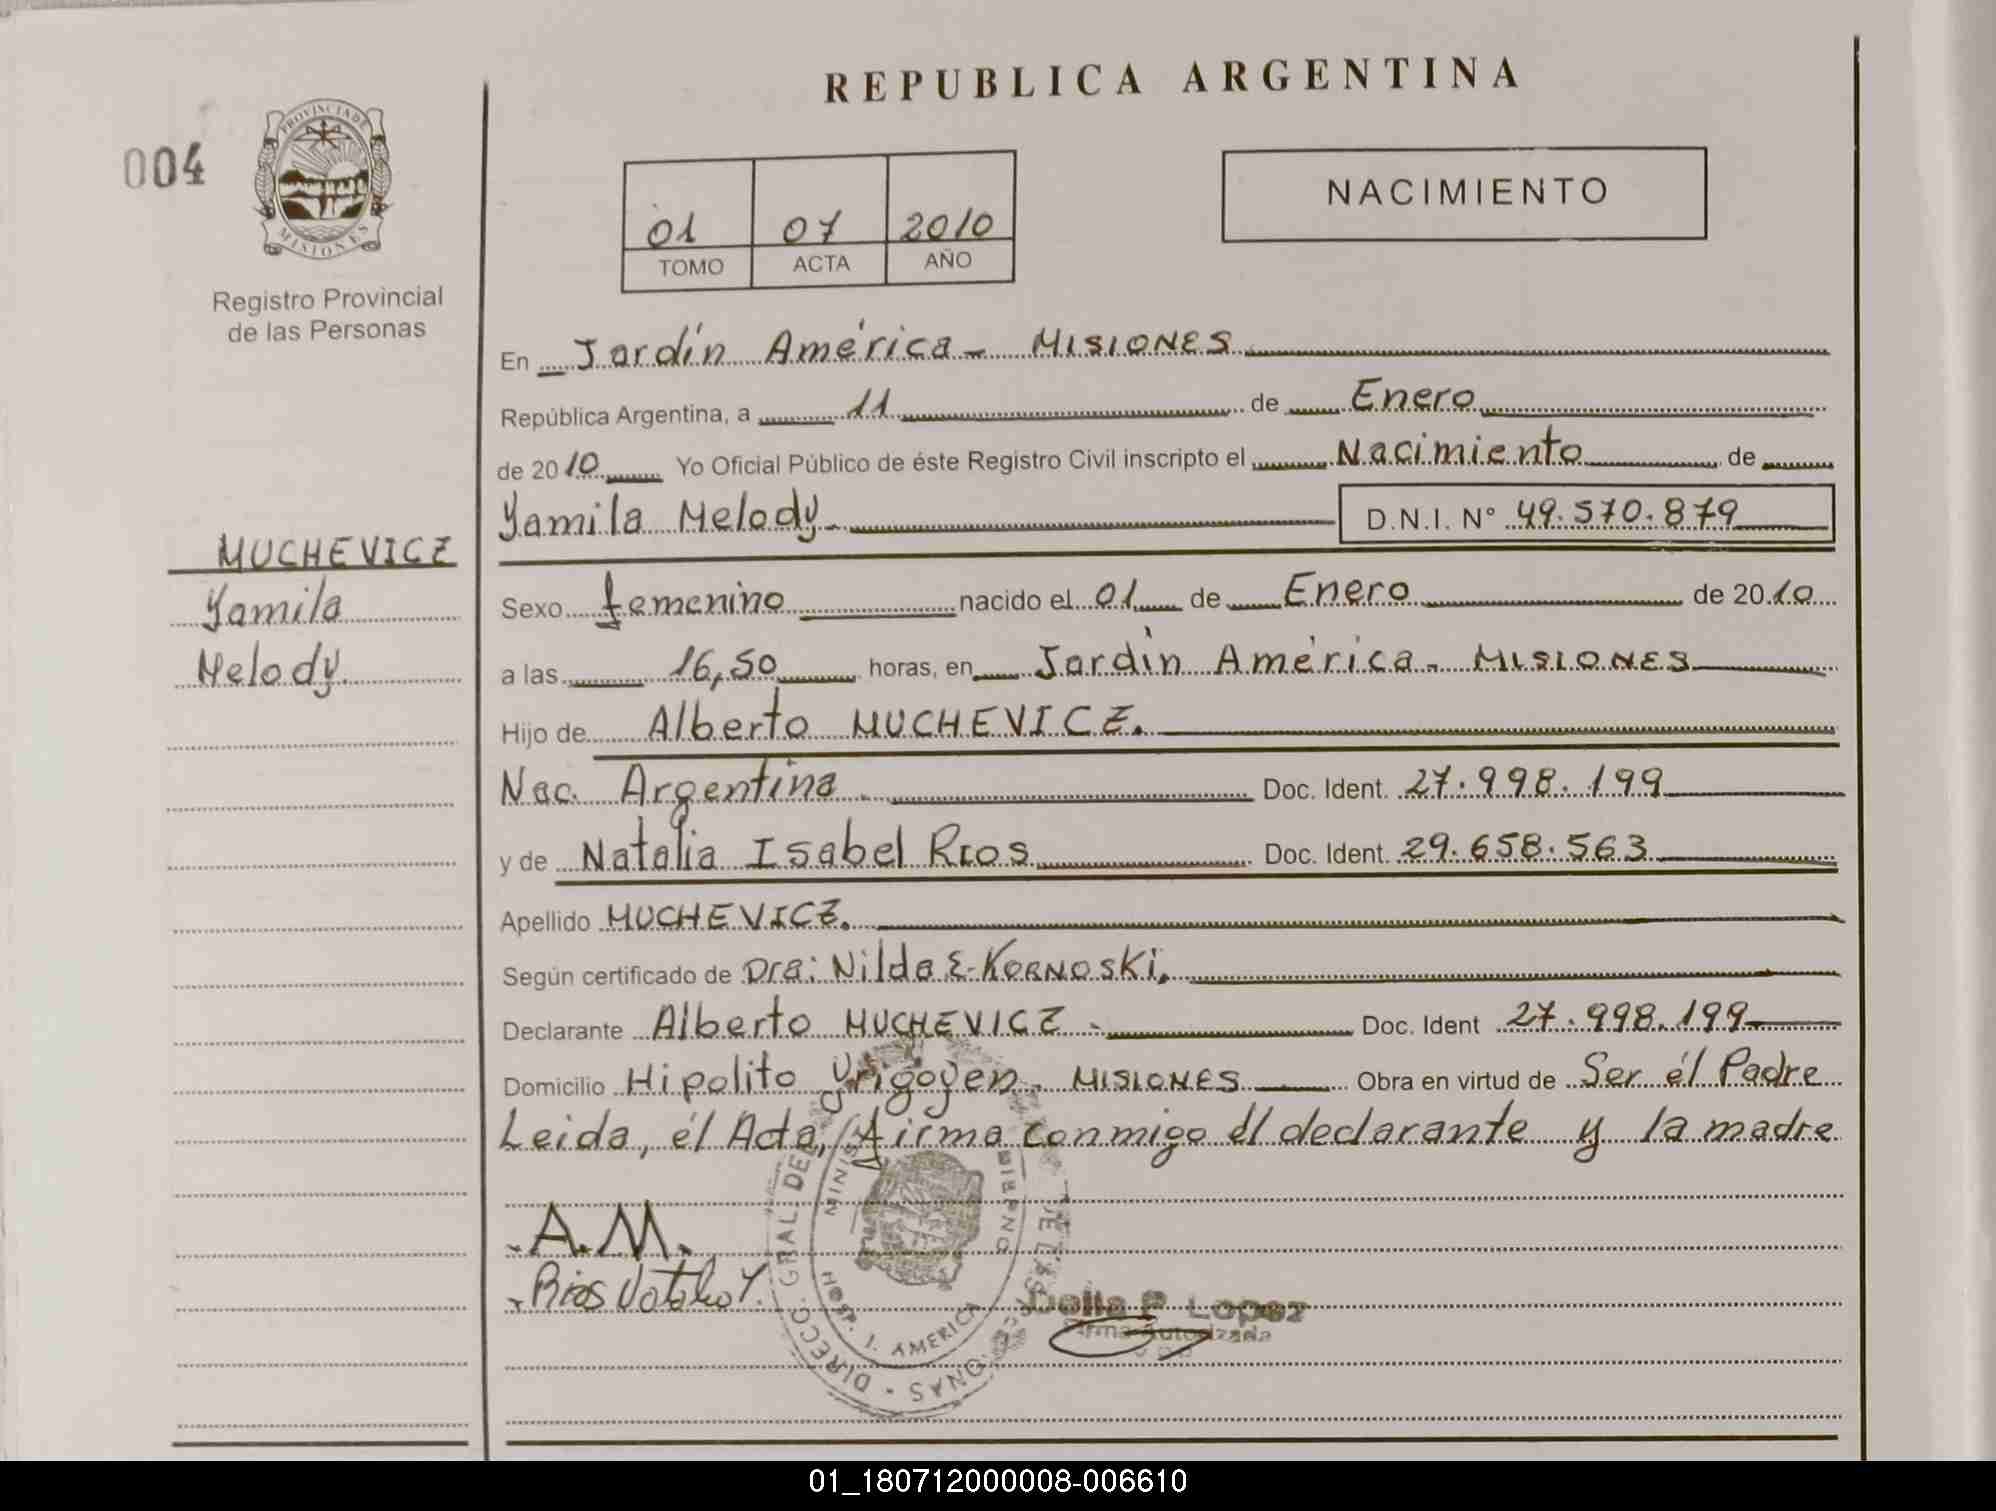 REPUBLICA ARGENTINA
004
PROVINCIA DE
MISIONES
Registro Provincial
de las Personas
NACIMIENTO
01 07 2010
TOMO ACTA AÑO
En Jardín América - MISIONES
República Argentina, a 11 de Enero
de 2010 Yo Oficial Público de éste Registro Civil inscripto el Nacimiento de
Yamila Melody D.N.I. N° 49.570.879
MUCHEVICZ
Yamila
Melody
Sexo femenino nacido el 01 de Enero de 2010
a las 16,50 horas, en Jardín América - MISIONES
Hijo de Alberto MUCHEVICZ.
Nac. Argentina Doc. Ident. 27.998.199
y de Natalia Isabel Rios Doc. Ident. 29.658.563
Apellido MUCHEVICZ.
Según certificado de Dra: Nilda E. KORNOSKI,
Declarante Alberto MUCHEVICZ - Doc. Ident 27.998.199
Domicilio Hipolito Yrigoyen - MISIONES Obra en virtud de Ser él Padre
Leida, él Acta, firma conmigo él declarante y la madre
A.M.
Rios Natalia I.
DIRECC. GRAL DE LAS PERSONAS
HOSP. J. AMERICA
Delia P. Lopez
Firma Autorizada
01_180712000008-006610